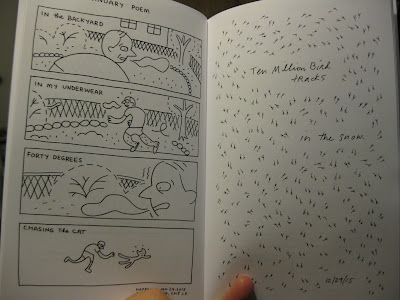 JANUARY POEM
IN THE BACKYARD
IN MY UNDERWEAR
FORTY DEGREES
CHASING THE CAT
Ten Million Bird
tracks
in the snow